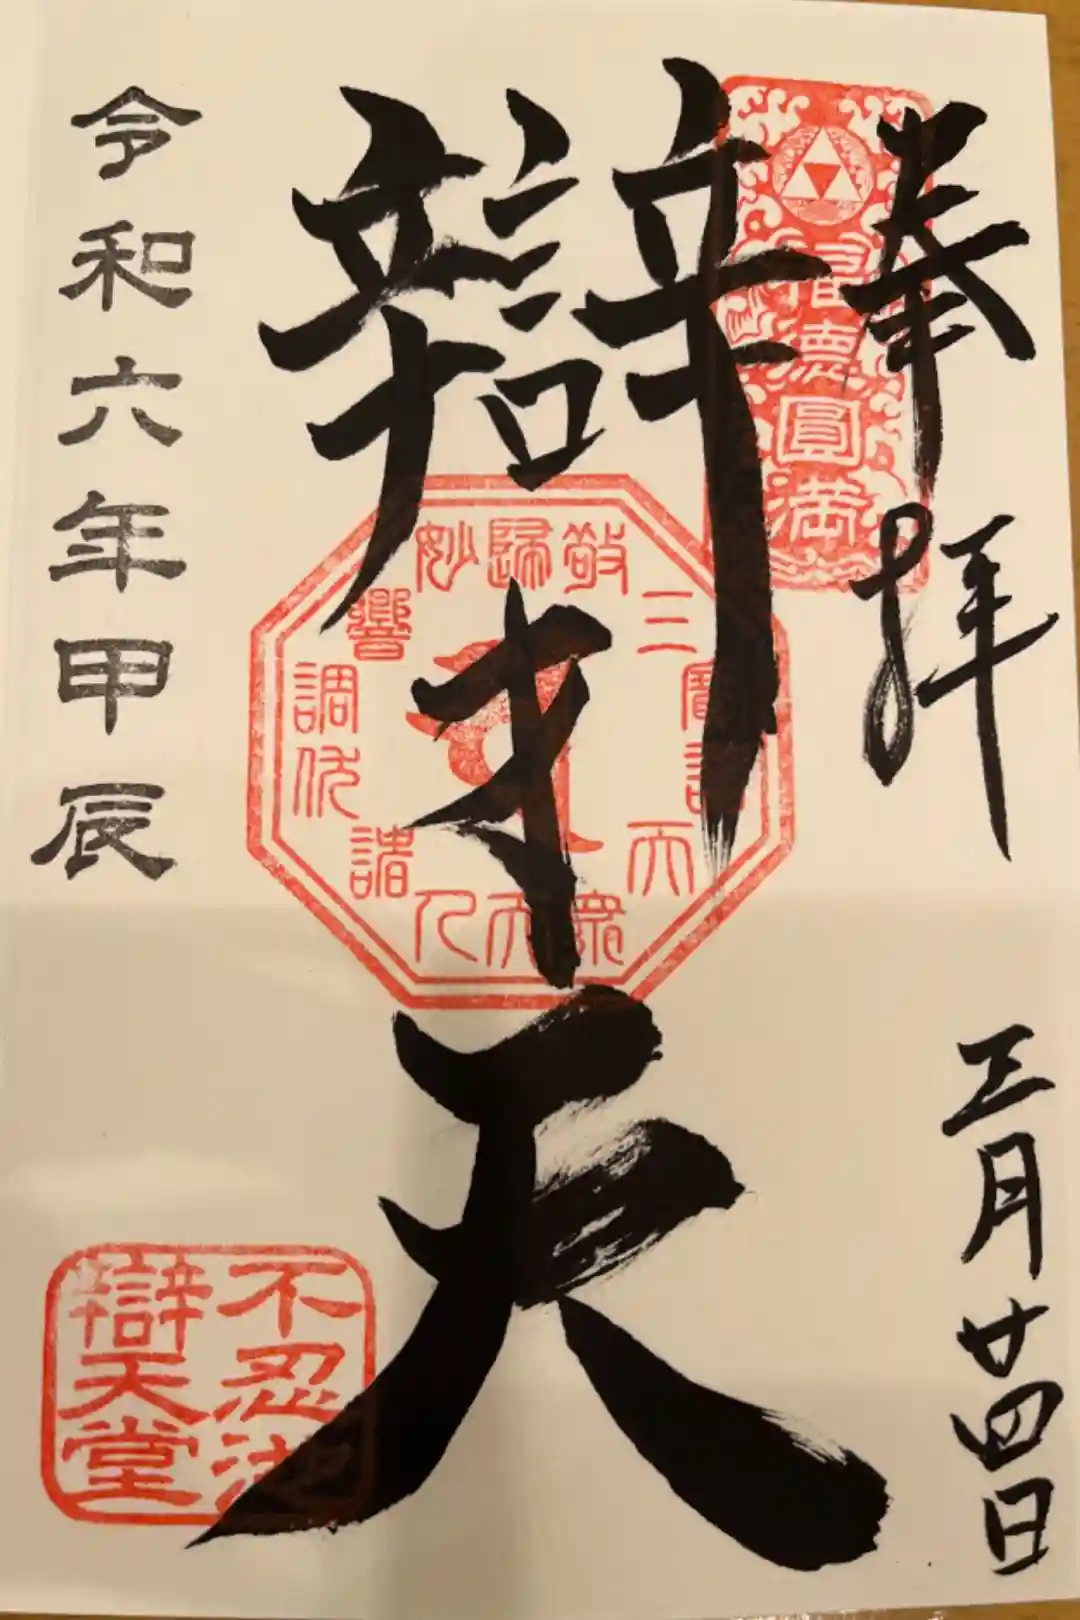 奉拝
三月廿四日
福德圓満
辯才天
歸敬三寶諸天衆天人諸伎調響妙
令和六年甲辰
不忍池
辯天堂